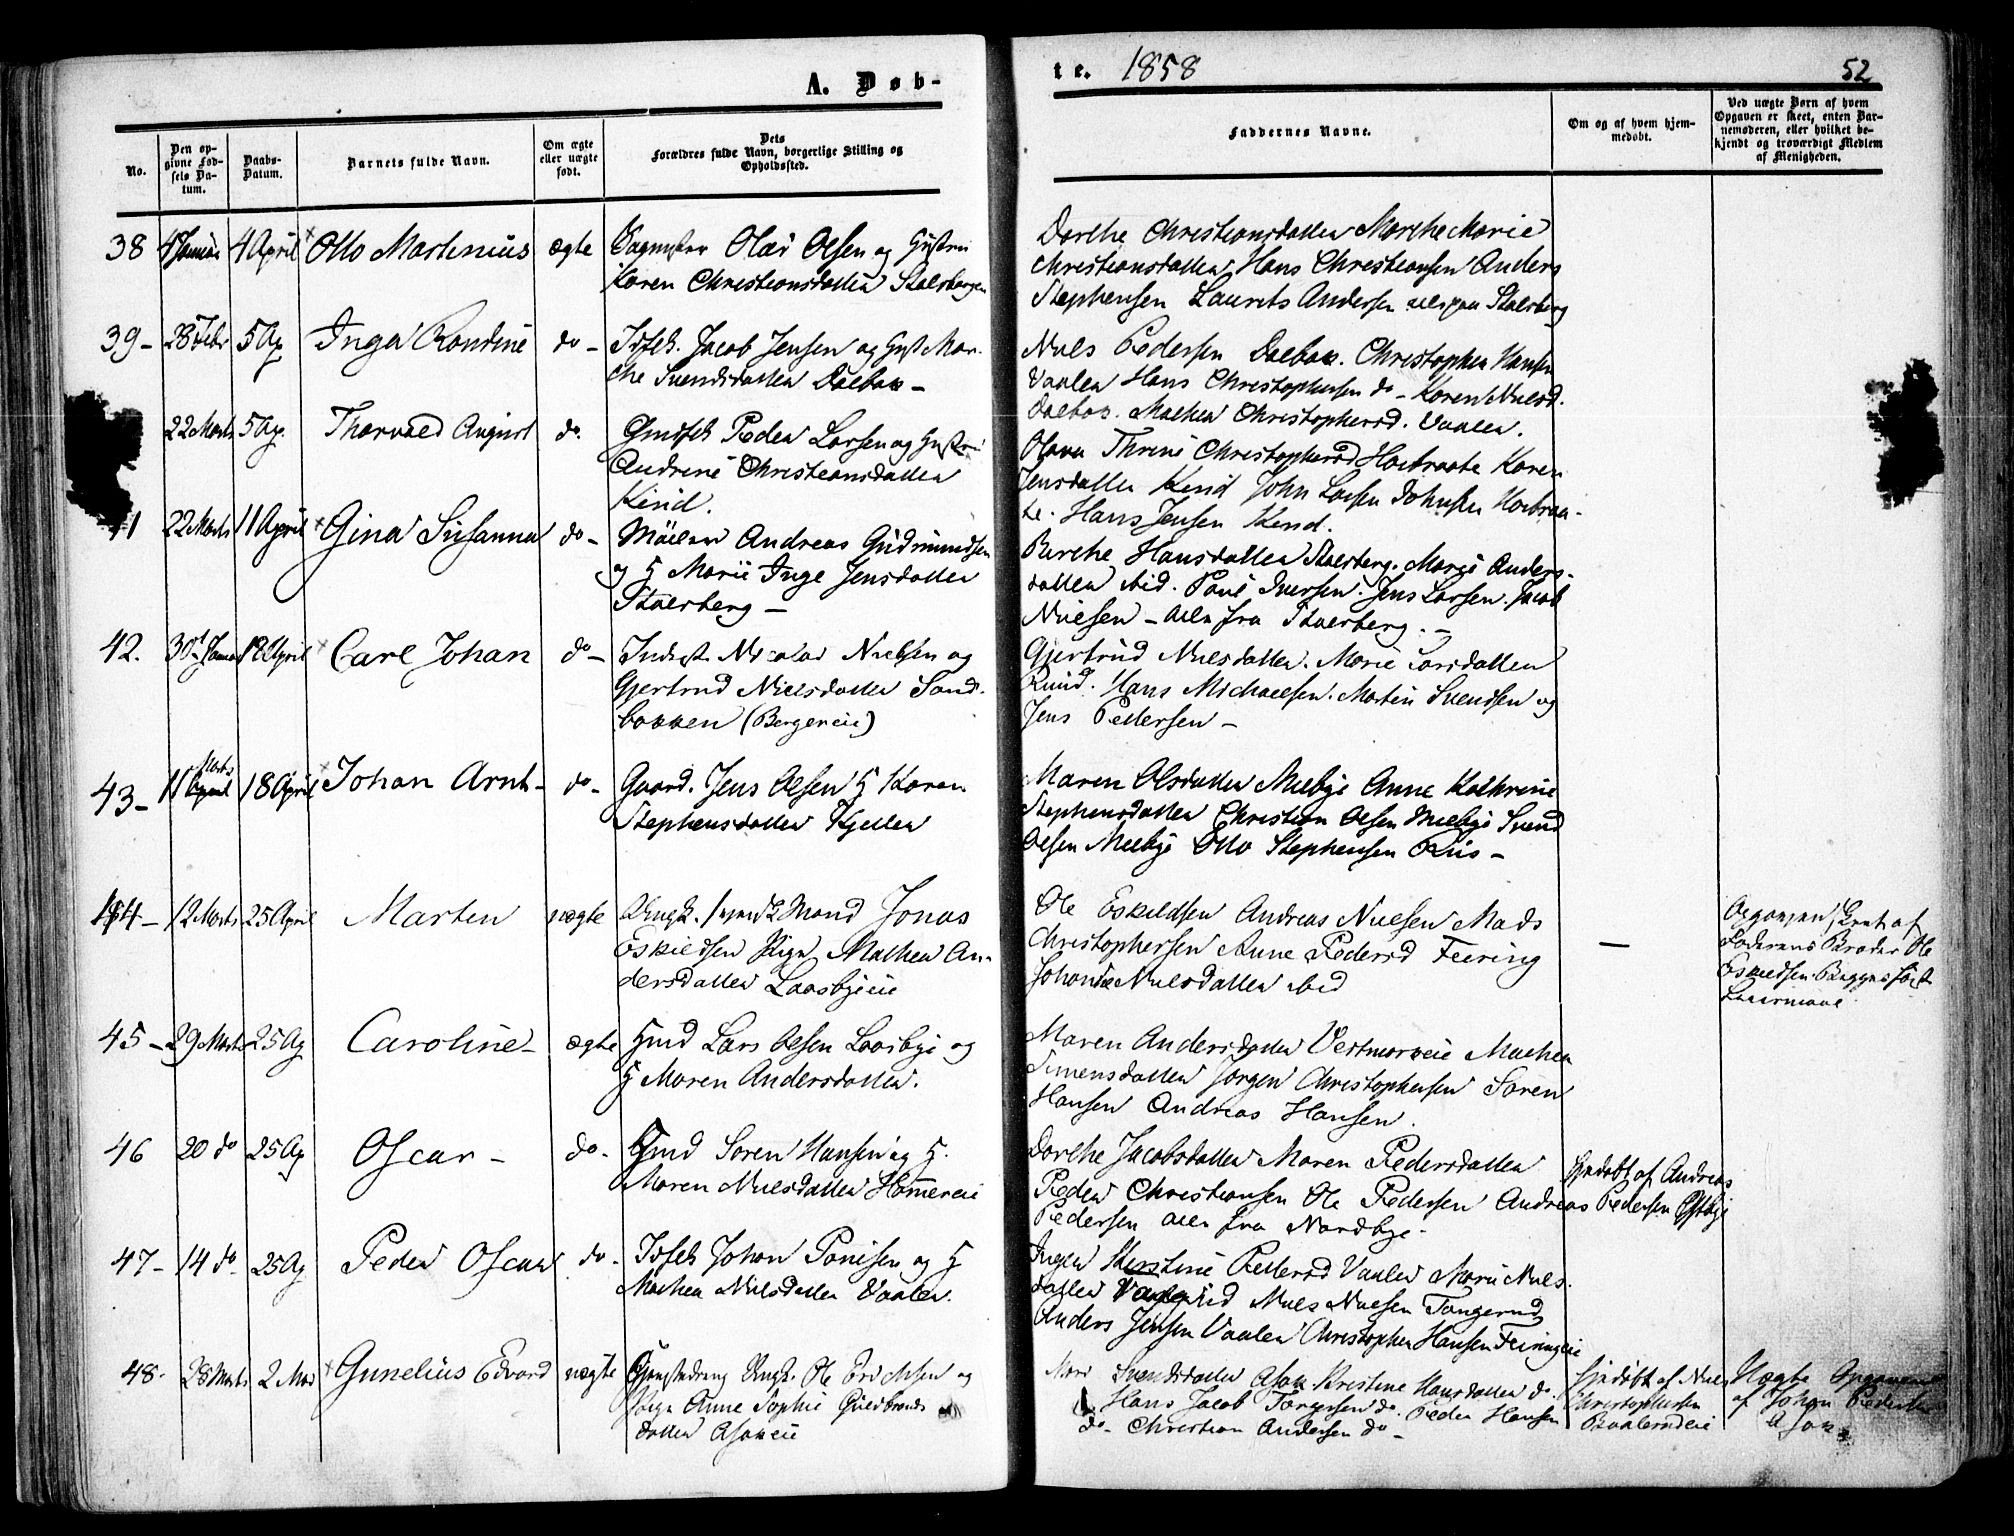 A. Døb-
te. 1858
52
No.
Den op-
givne Fød-
sels Da-
tum.
Daabs-
Datum.
Barnets fulde Navn.
Om ægte
eller uægte
født.
Dets
Forældres fulde Navn, borgerlige Stilling og
Opholdssted.
Faddernes Navne.
Om og af hvem hjem-
medøbt.
Ved uægte Børn af hvem
Opgaven er skeet, enten Bar-
nemoderen, eller hvilket be-
kjendt og troværdigt Medlem
af Menigheden.
38 4 April Otto Martinius ægte Olai Olsen og Hustru
Karen Christiansdatter Stalsbergen
Dorthe Christiansdatter Marthe Marie
Christiansdatter Hans Christiansen Anders
Stephensen Laurits Andersen alle paa Stalsberg
39- 28 Febr 5 Ap Inga Randine do- Jacob Jensen og Hust Mar-
the Svendsdatter Dalbak-
Niels Pedersen Dalbak. Christopher Hansen
Vaaler Hans Christophersen do- Karen Nielsd.
Dalbak. Mathea Christophersd. Vaaler.
22 Marts 5 Ap. Thorvald August do. Peder Larsen og Hustru
Andrine Christiansdatter
Kind.
Olava Thrine Christophersd Karen
Jensdatter Kind John Larsen
te. Hans Jensen Kind.
1 22 Marts 11 April Gina Susanna do- Andreas Gudmundsen
og H Marie Inge Jensdatter
Stalsberg-
Berthe Hansdatter Stalsberg. Marie Anders-
datter ibid. Paul Iversen. Jens Larsen. Jacob
Nielsen- alle fra Stalsberg.-
42. 30t Janua 18 April Carl Johan do- Inderst Nicolai Nielsen og
Gjertrud Nielsdatter Sand-
bakken (Bergereie)
Gjertrud Nielsdatter. Marie Larsdatter
Ruud. Hans Michaelsen. Martin Svendsen og
Jens Pedersen-
43- 11 April Marts 18 April Johan Arnt- do- Gaard. Jens Olsen H Karen
Stephensdatter Kjeller
Maren Olsdatter Melbye Anne Kathrine
Stephensdatter Christian Olsen Melbye Svend
Olsen Melbye Otto Stephensen Riis-
44- 12 Marts 25 April Marten uægte Ungk. Mand Jonas
Eskildsen Pige Mathea An-
dersdatter Laasbyeie
Ole Eskildsen Andreas Nielsen Mads
Christophersen Anne Pedersd Feiring
Johanne Nielsdatter ibid
-
Opgaven skeet af
Faderens Broder Ole
Eskildsen
45- 29 Marts 25 Ap Caroline- ægte Hmd Lars Olsen Laasbye og
H Maren Andersdatter.
Maren Andersdatter Mathea
Simensdatter Jørgen Christophersen Søren
Hansen Andreas Hansen.
46 20 do 25 Ap Oscar- do- Hmd Søren Hansen og H.
Maren Nielsdatter Hammereie
Dorthe Jacobsdatter Maren Pedersdatter
Peder Christiansen Ole Pedersen Andreas
Pedersen alle fra Nordbye-
Hjdøbt af Andreas
Pedersen Østbye
47- 14 do 25 Ap Peder Oscar do- Johan Paulsen og H
Mathea Nielsdatter Vaaler.
Inger Kirstine Pedersd Vaaler Marie Niels-
datter ibid Niels Nielsen Tangerud
Anders Jensen Vaaler Christopher Hansen Feiringeie
48- 28 Marts 2 Mai Gunelius Edvard uægte Ungk. Ole Erichsen og
Pige Anne Sophie Guldbrands
datter Asakeie
Svendsdatter Asak Kirstine Hansdatter do.
Hans Jacob Torgersen do. Peder Hansen
do- Christian Andersen do-
Hjdøbt af Niels
Christophersen
Uægte Opgaven
af Johan Pedersen
Asak